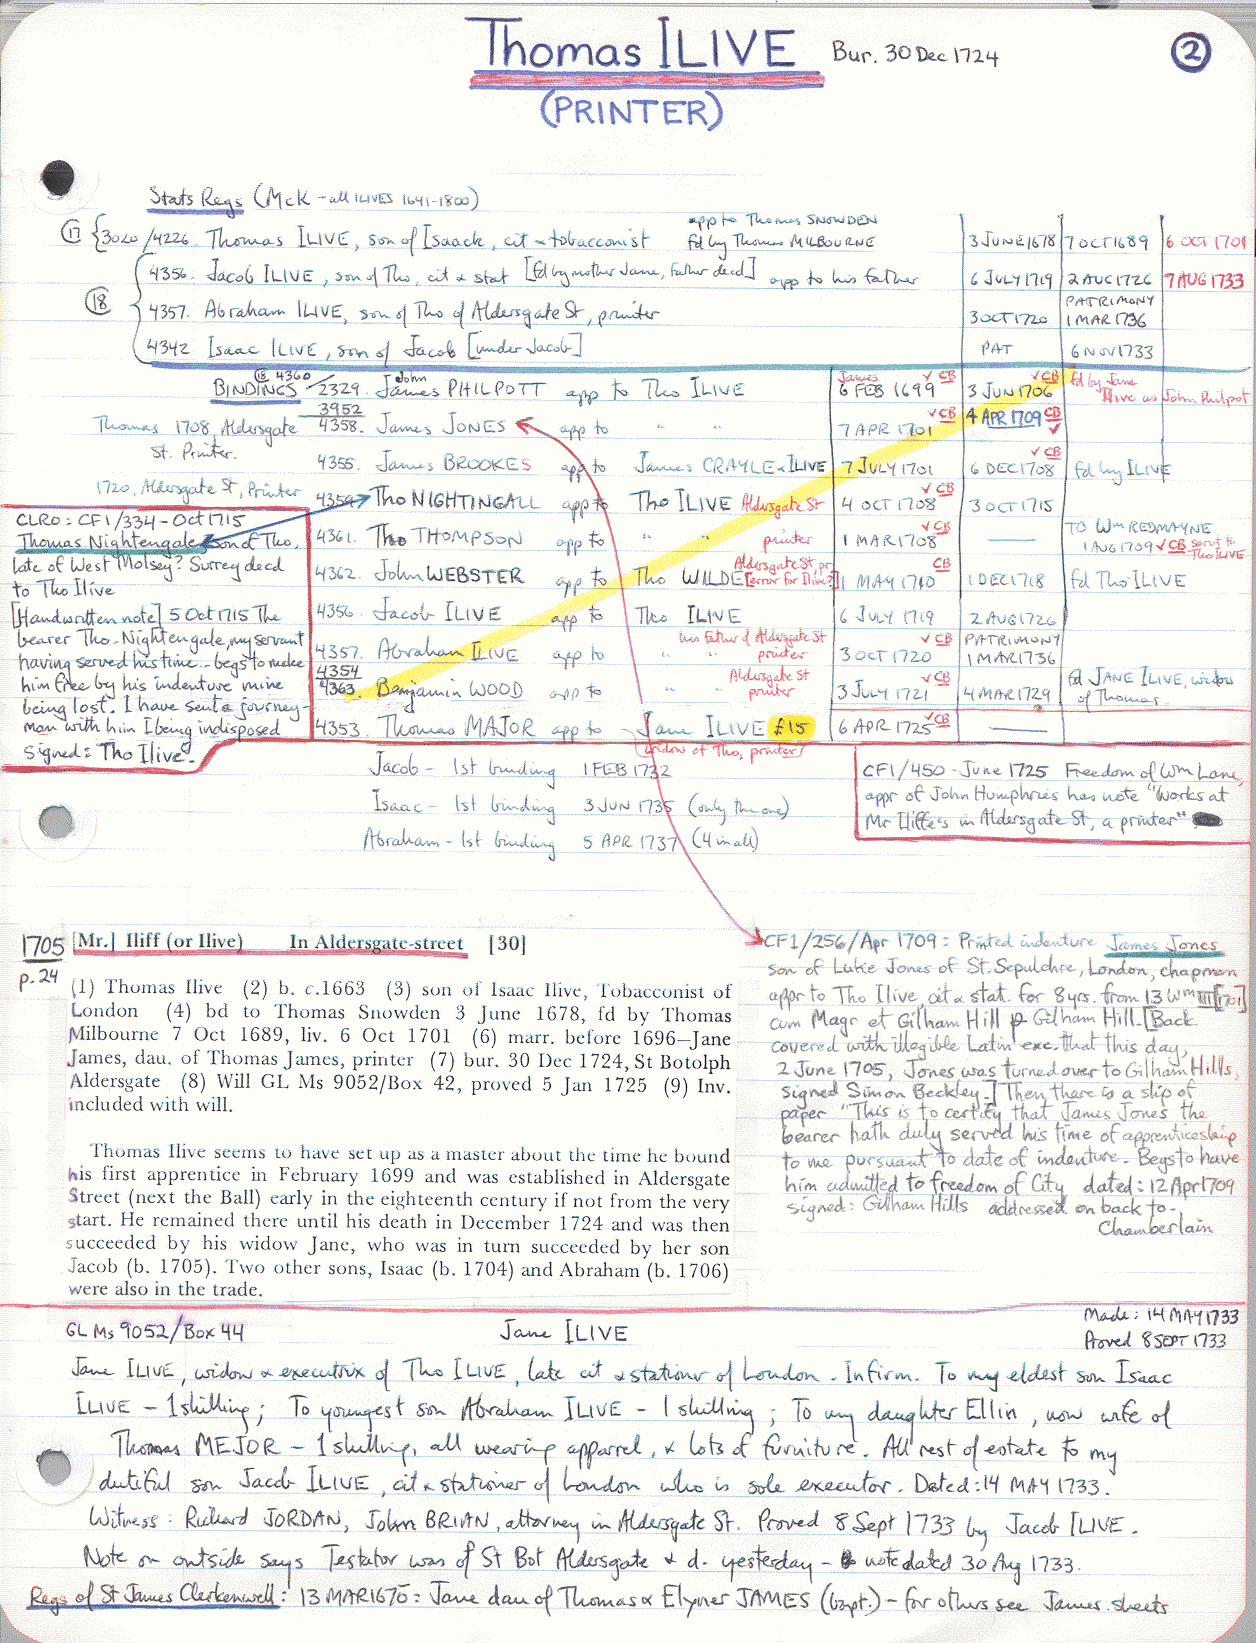 Thomas ILIVE Bur. 30 Dec 1724 2
(PRINTER)
Stats Regs (McK - all ILIVES 1641-1800)
app to Thomas SNOWDEN
17 3020/4226. Thomas ILIVE, son of Isaack, cit & tobacconist fd by Thomas MILBOURNE 3 JUNE 1678 7 OCT 1689 6 OCT 1701
4356. Jacob ILIVE, son of Tho, cit & stat [fd by mother Jane, father decd] app to his father 6 JULY 1719 2 AUG 1726 7 AUG 1733
18 4357. Abraham ILIVE, son of Tho of Aldersgate St, printer 3 OCT 1720 PATRIMONY 1 MAR 1736
4342 Isaac ILIVE, son of Jacob [under Jacob] PAT 6 NOV 1733
BINDINGS 18 4360 2329. James John PHILPOTT app to Tho ILIVE James 6 FEB 1699 ✓ CB 3 JUN 1706 ✓ CB fd by Jane Ilive as John Philpot
Thomas 1708, Aldersgate St. Printer.
3952
4358. James JONES app to " " 7 APR 1701 ✓ CB 4 APR 1709 CB ✓
4355. James BROOKES app to James CRAYLE & ILIVE 7 JULY 1701 6 DEC 1708 ✓ CB fd by ILIVE
1720, Aldersgate St, Printer
4359 Tho NIGHTINGALL app to Tho ILIVE Aldersgate St 4 OCT 1708 ✓ CB 3 OCT 1715
4361. Tho THOMPSON app to " " printer 1 MAR 1708 ✓ CB — TO Wm REDMAYNE 1 AUG 1709 ✓ CB to Tho ILIVE
4362. John WEBSTER app to Tho WILDE [error for Ilive?] Aldersgate St, pr 1 MAY 1710 CB 1 DEC 1718 fd Tho ILIVE
4356. Jacob ILIVE app to Tho ILIVE 6 JULY 1719 2 AUG 1726
4357. Abraham ILIVE app to " " his father of Aldersgate St printer 3 OCT 1720 ✓ CB PATRIMONY 1 MAR 1736
4354
4363. Benjamin WOOD app to " " Aldersgate St printer 3 JULY 1721 ✓ CB 4 MAR 1729 fd JANE ILIVE, widow of Thomas.
4353. Thomas MAJOR app to Jane ILIVE £15 6 APR 1725 ✓ CB —
(widow of Tho, printer)
CLRO: CF1/334 - Oct 1715
Thomas Nightengale, son of Tho,
late of West Molsey? Surrey decd
to Tho Ilive
[Handwritten note] 5 Oct 1715 The
bearer Tho. Nightengale, my servant
having served his time - begs to make
him free by his indenture mine
being lost. I have sent a journey-
man with him I being indisposed
Signed: Tho Ilive.
Jacob - 1st binding 1 FEB 1732
Isaac - 1st binding 3 JUN 1735 (only the one)
Abraham - 1st binding 5 APR 1737 (4 in all)
CF1/450 - June 1725 Freedom of Wm Lane,
appr of John Humphries has note "Works at
Mr Iliffe's in Aldersgate St, a printer"
1705 [Mr.] Iliff (or Ilive) In Aldersgate-street [30]
p.24
(1) Thomas Ilive (2) b. c.1663 (3) son of Isaac Ilive, Tobacconist of
London (4) bd to Thomas Snowden 3 June 1678, fd by Thomas
Milbourne 7 Oct 1689, liv. 6 Oct 1701 (6) marr. before 1696—Jane
James, dau. of Thomas James, printer (7) bur. 30 Dec 1724, St Botolph
Aldersgate (8) Will GL Ms 9052/Box 42, proved 5 Jan 1725 (9) Inv.
included with will.
Thomas Ilive seems to have set up as a master about the time he bound
his first apprentice in February 1699 and was established in Aldersgate
Street (next the Ball) early in the eighteenth century if not from the very
start. He remained there until his death in December 1724 and was then
succeeded by his widow Jane, who was in turn succeeded by her son
Jacob (b. 1705). Two other sons, Isaac (b. 1704) and Abraham (b. 1706)
were also in the trade.
CF1/256/Apr 1709: Printed indenture James Jones
son of Luke Jones of St. Sepulchre, London, chapman
appr to Tho Ilive, cit & stat. for 8 yrs. from 13 Wm III [1701]
cum Magr et Gilham Hill p Gilham Hill. [Back
covered with illegible Latin exc. that this day,
2 June 1705, Jones was turned over to Gilham Hills,
signed Simon Beckley.] Then there is a slip of
paper "This is to certify that James Jones the
bearer hath duly served his time of apprenticeship
to me pursuant to date of indenture. Begs to have
him admitted to freedom of City dated: 12 Apr 1709
signed: Gilham Hills addressed on back to -
Chamberlain
GL Ms 9052/Box 44 Jane ILIVE Made: 14 MAY 1733
Proved 8 SEPT 1733
Jane ILIVE, widow & executrix of Tho ILIVE, late cit & stationer of London. Infirm. To my eldest son Isaac
ILIVE - 1 shilling; To youngest son Abraham ILIVE - 1 shilling; To my daughter Ellin, now wife of
Thomas MEJOR - 1 shilling, all wearing apparrel, & lots of furniture. All rest of estate to my
dutiful son Jacob ILIVE, cit & stationer of London who is sole executor. Dated: 14 MAY 1733.
Witness: Richard JORDAN, John BRIAN, attorney in Aldersgate St. Proved 8 Sept 1733 by Jacob ILIVE.
Note on outside says Testator was of St Bot Aldersgate & d. yesterday - note dated 30 Aug 1733.
Regs of St James Clerkenwell: 13 MAR 1670: Jane dau of Thomas & Elyner JAMES (bapt.) - for others see James sheets